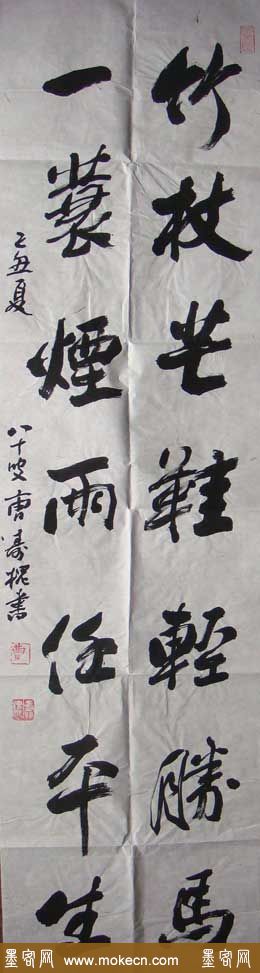 竹杖芒鞋輕勝馬
一蓑煙雨任平生
己丑夏
八十叟曹寿槐书
墨客网 www.mokecn.com 墨客网